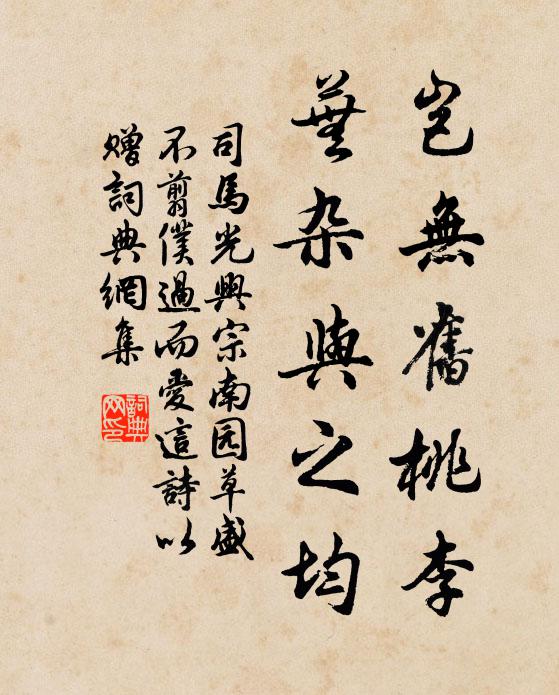 豈無舊桃李
蕪杂與之均
司馬光興宗南园草盛
不翦僕過而愛這詩以
贈詞典網集
詞典
网印